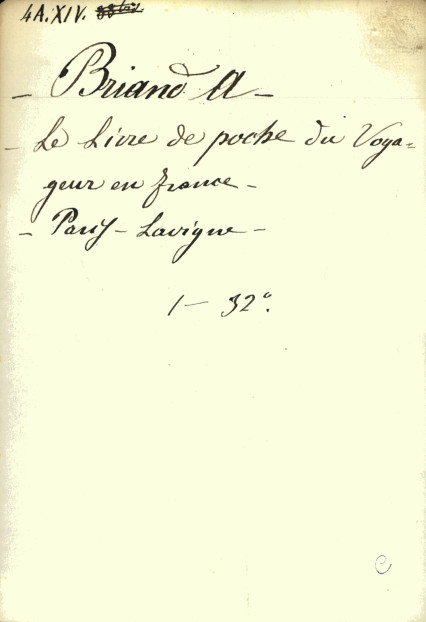 4A.XIV.
– Briand A –
– Le Livre de poche du Voya=
geur en france –
– Paris – Lavigne –
1 – 32°.
C